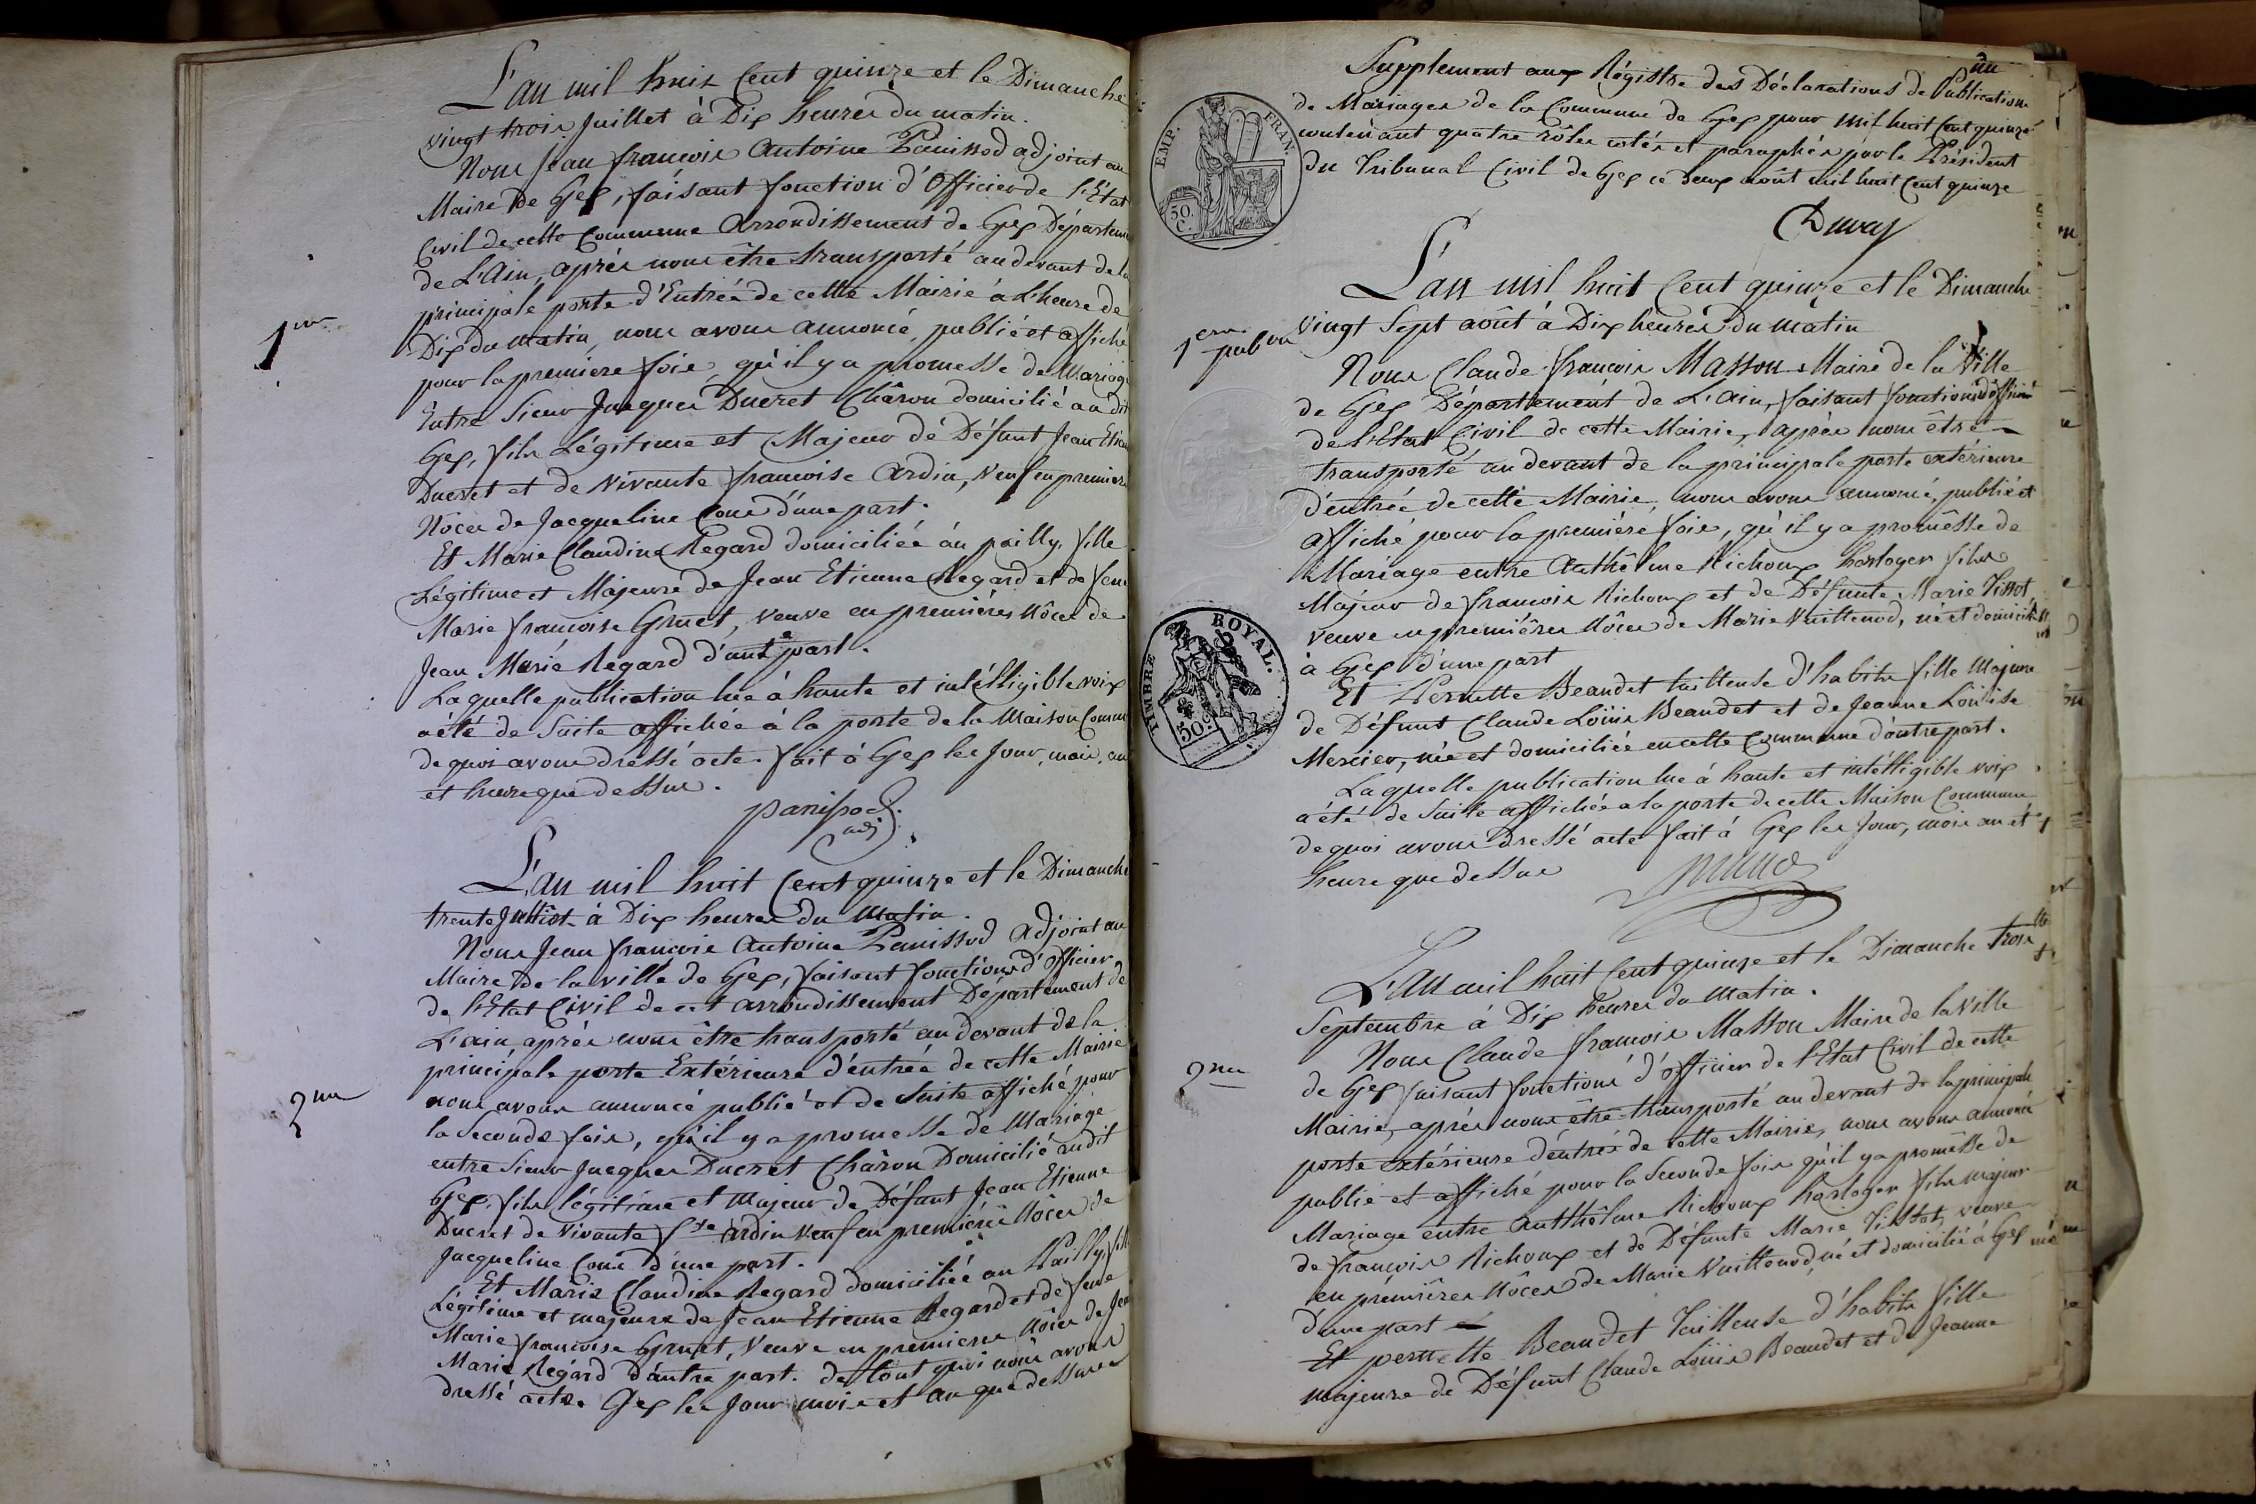 L'an mil huit Cent quinze et le Dimanche
vingt trois Juillet à Dix heures du matin.
Nous Jean françois Antoine Panissod adjoint au
Maire de Gex, faisant fonction d'Officier de l'État
Civil de cette Commune Arrondissement de Gex Départeme
de L'Ain, après nous être transporté au devant de la
principale porte d'Entrée de cette Mairie à L'heure de
1ere
Dix du matin, nous avons annoncé, publié et affiché
pour la premiere fois, qu'il y a promesse de Mariage
Entre Sieur Jacques Ducret Châron domicilié au dit
Gex, fils Légitime et Majeur de Défunt Jean Etien
Ducret et de vivante françoise Ardin, veuf en premiere
Nôces de Jacqueline Cone d'une part.
Et Marie Claudine Regard domiciliée au pailly, fille
Légitime et Majeure de Jean Etienne Regard et de feue
Marie françoise Gruet, veuve en premières Nôces de
Jean Marie Regard d'autre part.
Laquelle publication lue à haute et intélligible voix
a été de suite affichée à la porte de la Maison Commu
de quoi avons dressé acte. fait à Gex les Jour, mois, an
et heure que dessus.
Panissod
adj
L'an mil huit Cent quinze et le Dimanche
trente Juillet à Dix heures du Matin.
Nous Jean françois Antoine Panissod Adjoint au
Maire de la ville de Gex, faisant fonctions d'Officier
de l'Etat Civil de cet arrondissement Département de
L'ain après nous être transporté au devant de la
principale porte Extérieure d'entrée de cette Mairie
2me
nous avons annoncé publié et de suite affiché pour
la seconde fois, qu'il y a promesse de Mariage
entre Sieur Jacques Ducret Châron Domicilié au dit
Gex, fils légitime et majeur de Défunt Jean Etienne
Ducret de vivante fse Ardin veuf en première Nôces de
Jacqueline Cone d'une part.
Et Marie Claudine Regard domiciliée au Pailly, fille
Légitime et majeure de Jean Etienne Regard et de feue
Marie françoise Gruet, veuve en premieres Nôces de Jean
Marie Regard d'autre part. de tout quoi nous avons
dressé acte. Gex les Jour mois et an que dessus
un
Supplement aux Régistre des Déclarations de Publications
de Mariages de la Commune de Gex pour mil huit Cent quinze
contenant quatre rôles cotés et paraphés par le Président
du Tribunal Civil de Gex ce deux août mil huit Cent quinze
EMP. FRAN.
50.
C.
L'an mil huit Cent quinze et le Dimanche
1ere pubon
vingt sept août à Dix heures du matin
Nous Claude françois Masson Maire de la Ville
de Gex Département de L'Ain, faisant fonctions d'officier
de l'Etat Civil de cette Mairie, après nous être
transporté au devant de la principale porte extérieure
d'entrée de cette Mairie, nous avons annoncé, publié et
affiché pour la première fois, qu'il y a promêsse de
Mariage entre Anthélme Richoux horloger fils
Majeur de françois Richoux et de Défunte Marie Tissot,
veuve en premières Nôces de Marie Vuittenod, né et domicilié
à Gex d'une part
TIMBRE ROYAL.
50.c
Et Pernette Beaudet tailleuse d'habits fille Majeure
de Défunt Claude Loüis Beaudet et de Jeanne Louise
Mercier, née et domiciliée en cette Commune d'autre part.
Laquelle publication lue à haute et intélligible voix
a été de suite affichée à la porte de cette Maison Commune
de quoi avons dressé acte fait à Gex les Jour, mois an et
heure que dessus
L'an mil huit Cent quinze et le Dimanche trois
Septembre à Dix heures du Matin.
Nous Claude françois Masson Maire de la Ville
2me
de Gex faisant fonctions d'officier de l'Etat Civil de cette
Mairie, après nous être transporté au devant de la principale
porte extérieure d'entrée de cette Mairie, nous avons annoncé
publié et affiché pour la seconde fois qu'il y a promêsse de
Mariage entre Anthélme Richoux horloger fils majeur
de françois Richoux et de Défunte Marie Tissot, veuve
en premières Nôces de Marie Vuittenod, né et domicilié à Gex
d'une part
Et pernette Beaudet Tailleuse d'habits fille
majeure de Défunt Claude Loüis Beaudet et de Jeanne